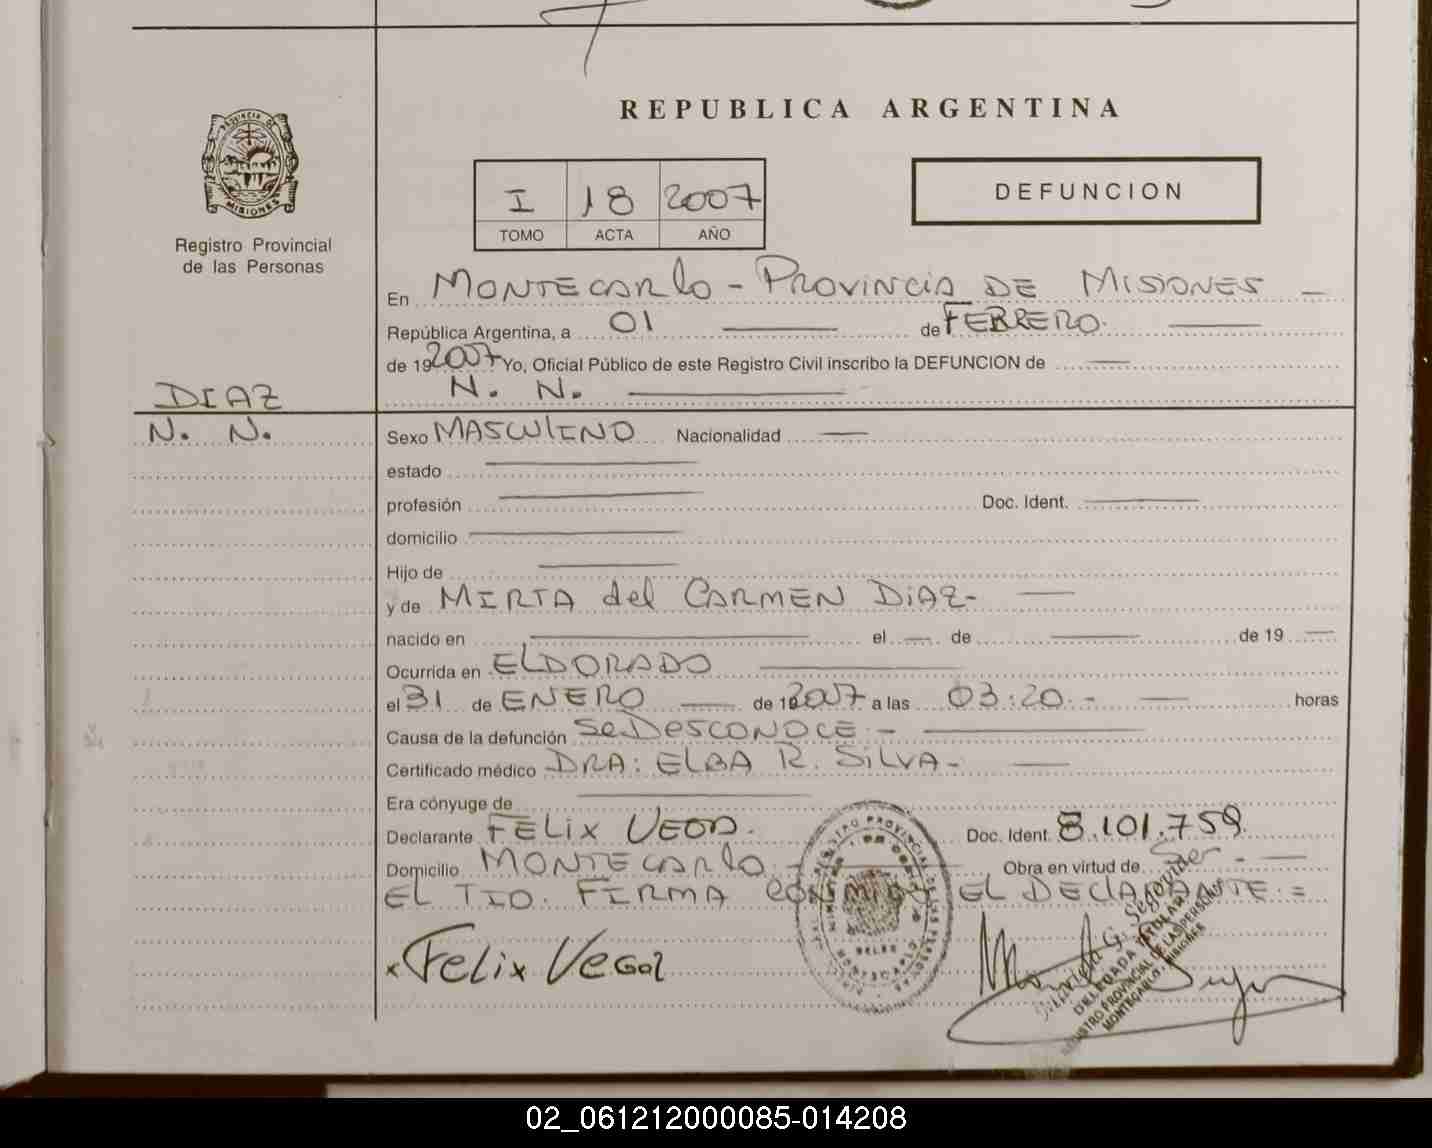 REPUBLICA ARGENTINA
PROVINCIA DE
MISIONES
Registro Provincial
de las Personas
I 18 2007
TOMO ACTA AÑO
DEFUNCION
En MONTECARLO - PROVINCIA DE MISIONES -
República Argentina, a 01 de FEBRERO.
de 192007 Yo, Oficial Público de este Registro Civil inscribo la DEFUNCION de
N. N.
DIAZ
N. N.
Sexo MASCULINO Nacionalidad
estado
profesión Doc. Ident.
domicilio
Hijo de
y de MIRTA del CARMEN DIAZ-
nacido en el de de 19
Ocurrida en ELDORADO
el 31 de ENERO de 192007 a las 03:20.- horas
Causa de la defunción Se DESCONOCE.-
Certificado médico DRA: ELBA R. SILVA-
Era cónyuge de
Declarante FELIX VEGA. Doc. Ident. 8.101.759
Domicilio MONTECARLO.- Obra en virtud de Ser -
EL TIO. FIRMA CONMIGO EL DECLARANTE.=
x Felix Vega
REGISTRO PROVINCIAL DE LAS PERSONAS
MONTECARLO
G. Segovia
DELEGADA TITULAR
REGISTRO PROVINCIAL DE LAS PERSONAS
MONTECARLO - MISIONES
02_061212000085-014208